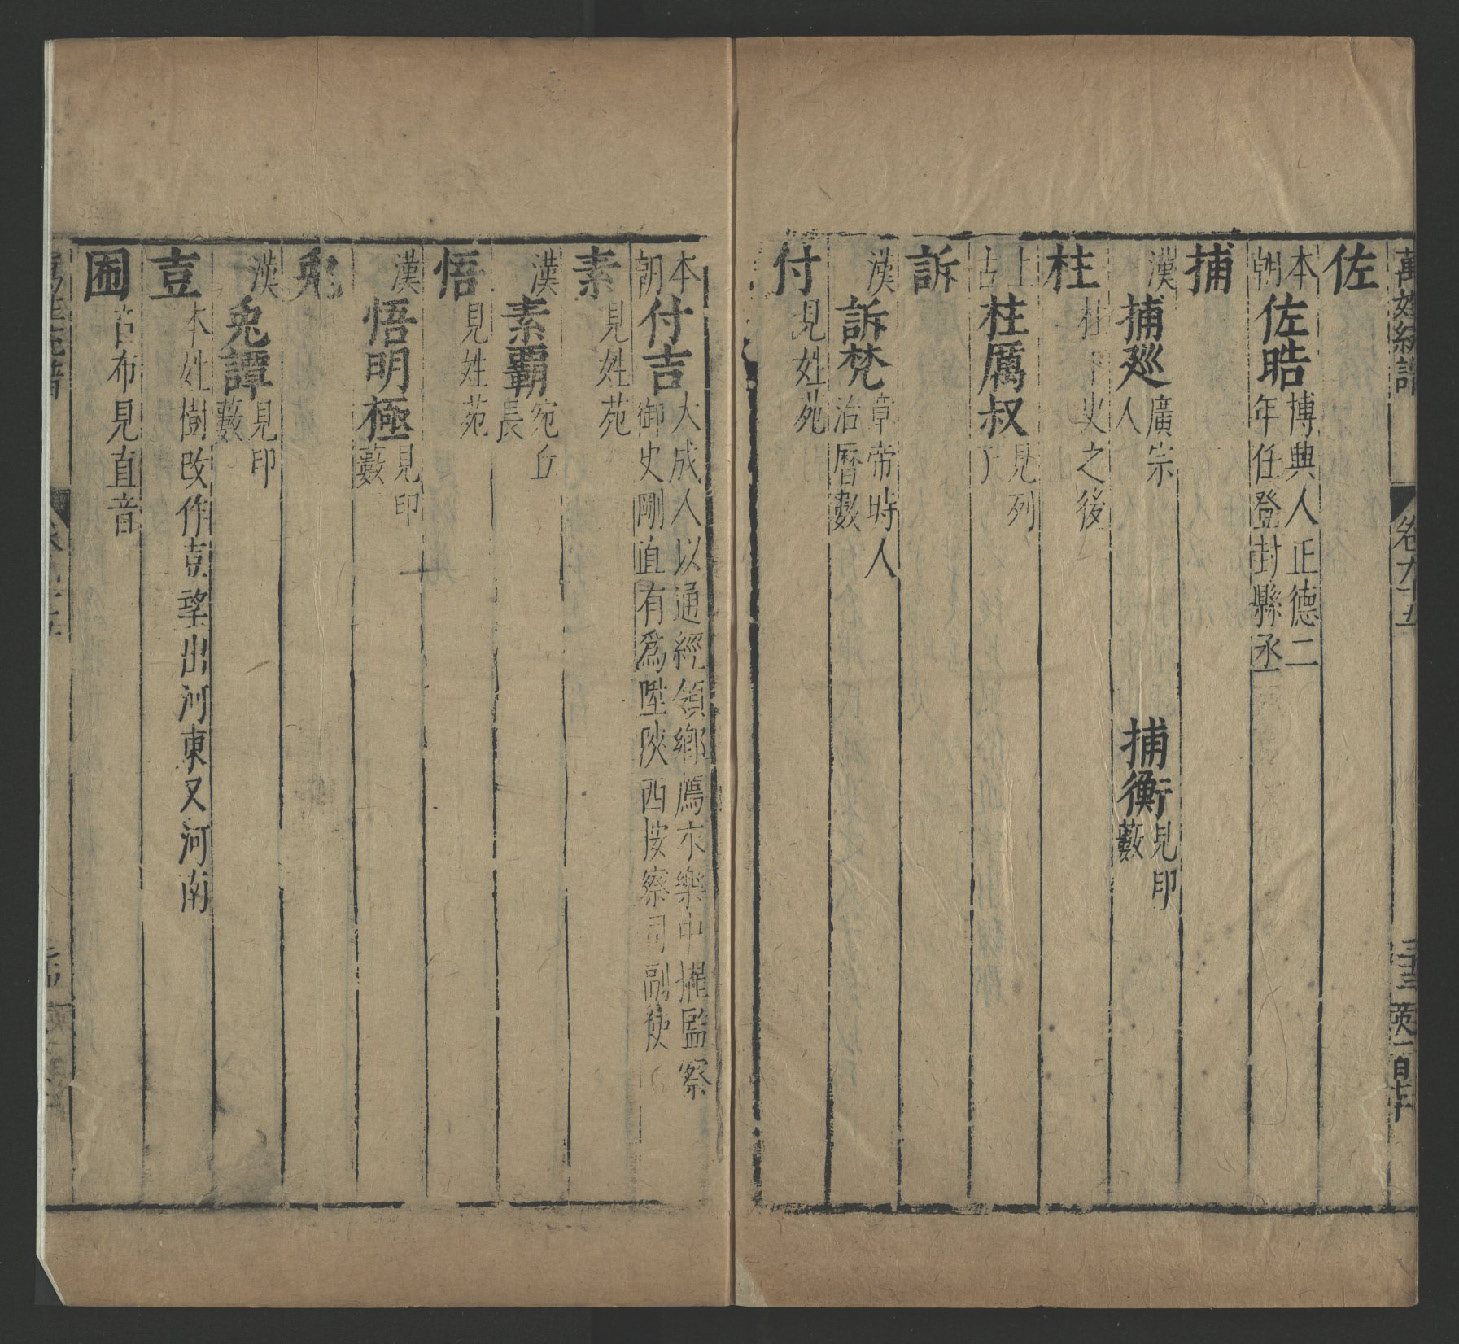 萬姓統譜 卷九十五
佐
本朝 佐晧 博興人正德二年任登封縣丞
捕
漢 捕廵 廣宗人 捕衡 見印藪
柱
柱下史之後
上古 柱厲叔 見列
訴
漢 訴梵 章帝時人治曆數
付
見姓苑
本朝 付吉 大成人以通經領鄉薦永樂中擢監察御史剛直有爲陞陜西按察司副使
素
見姓苑
漢 素霸 宛丘長
悟
見姓苑
漢 悟明極 見印藪
兔
漢 兔譚 見印藪
壴
本姓樹改作壴望出河東又河南
圃
音布見直音